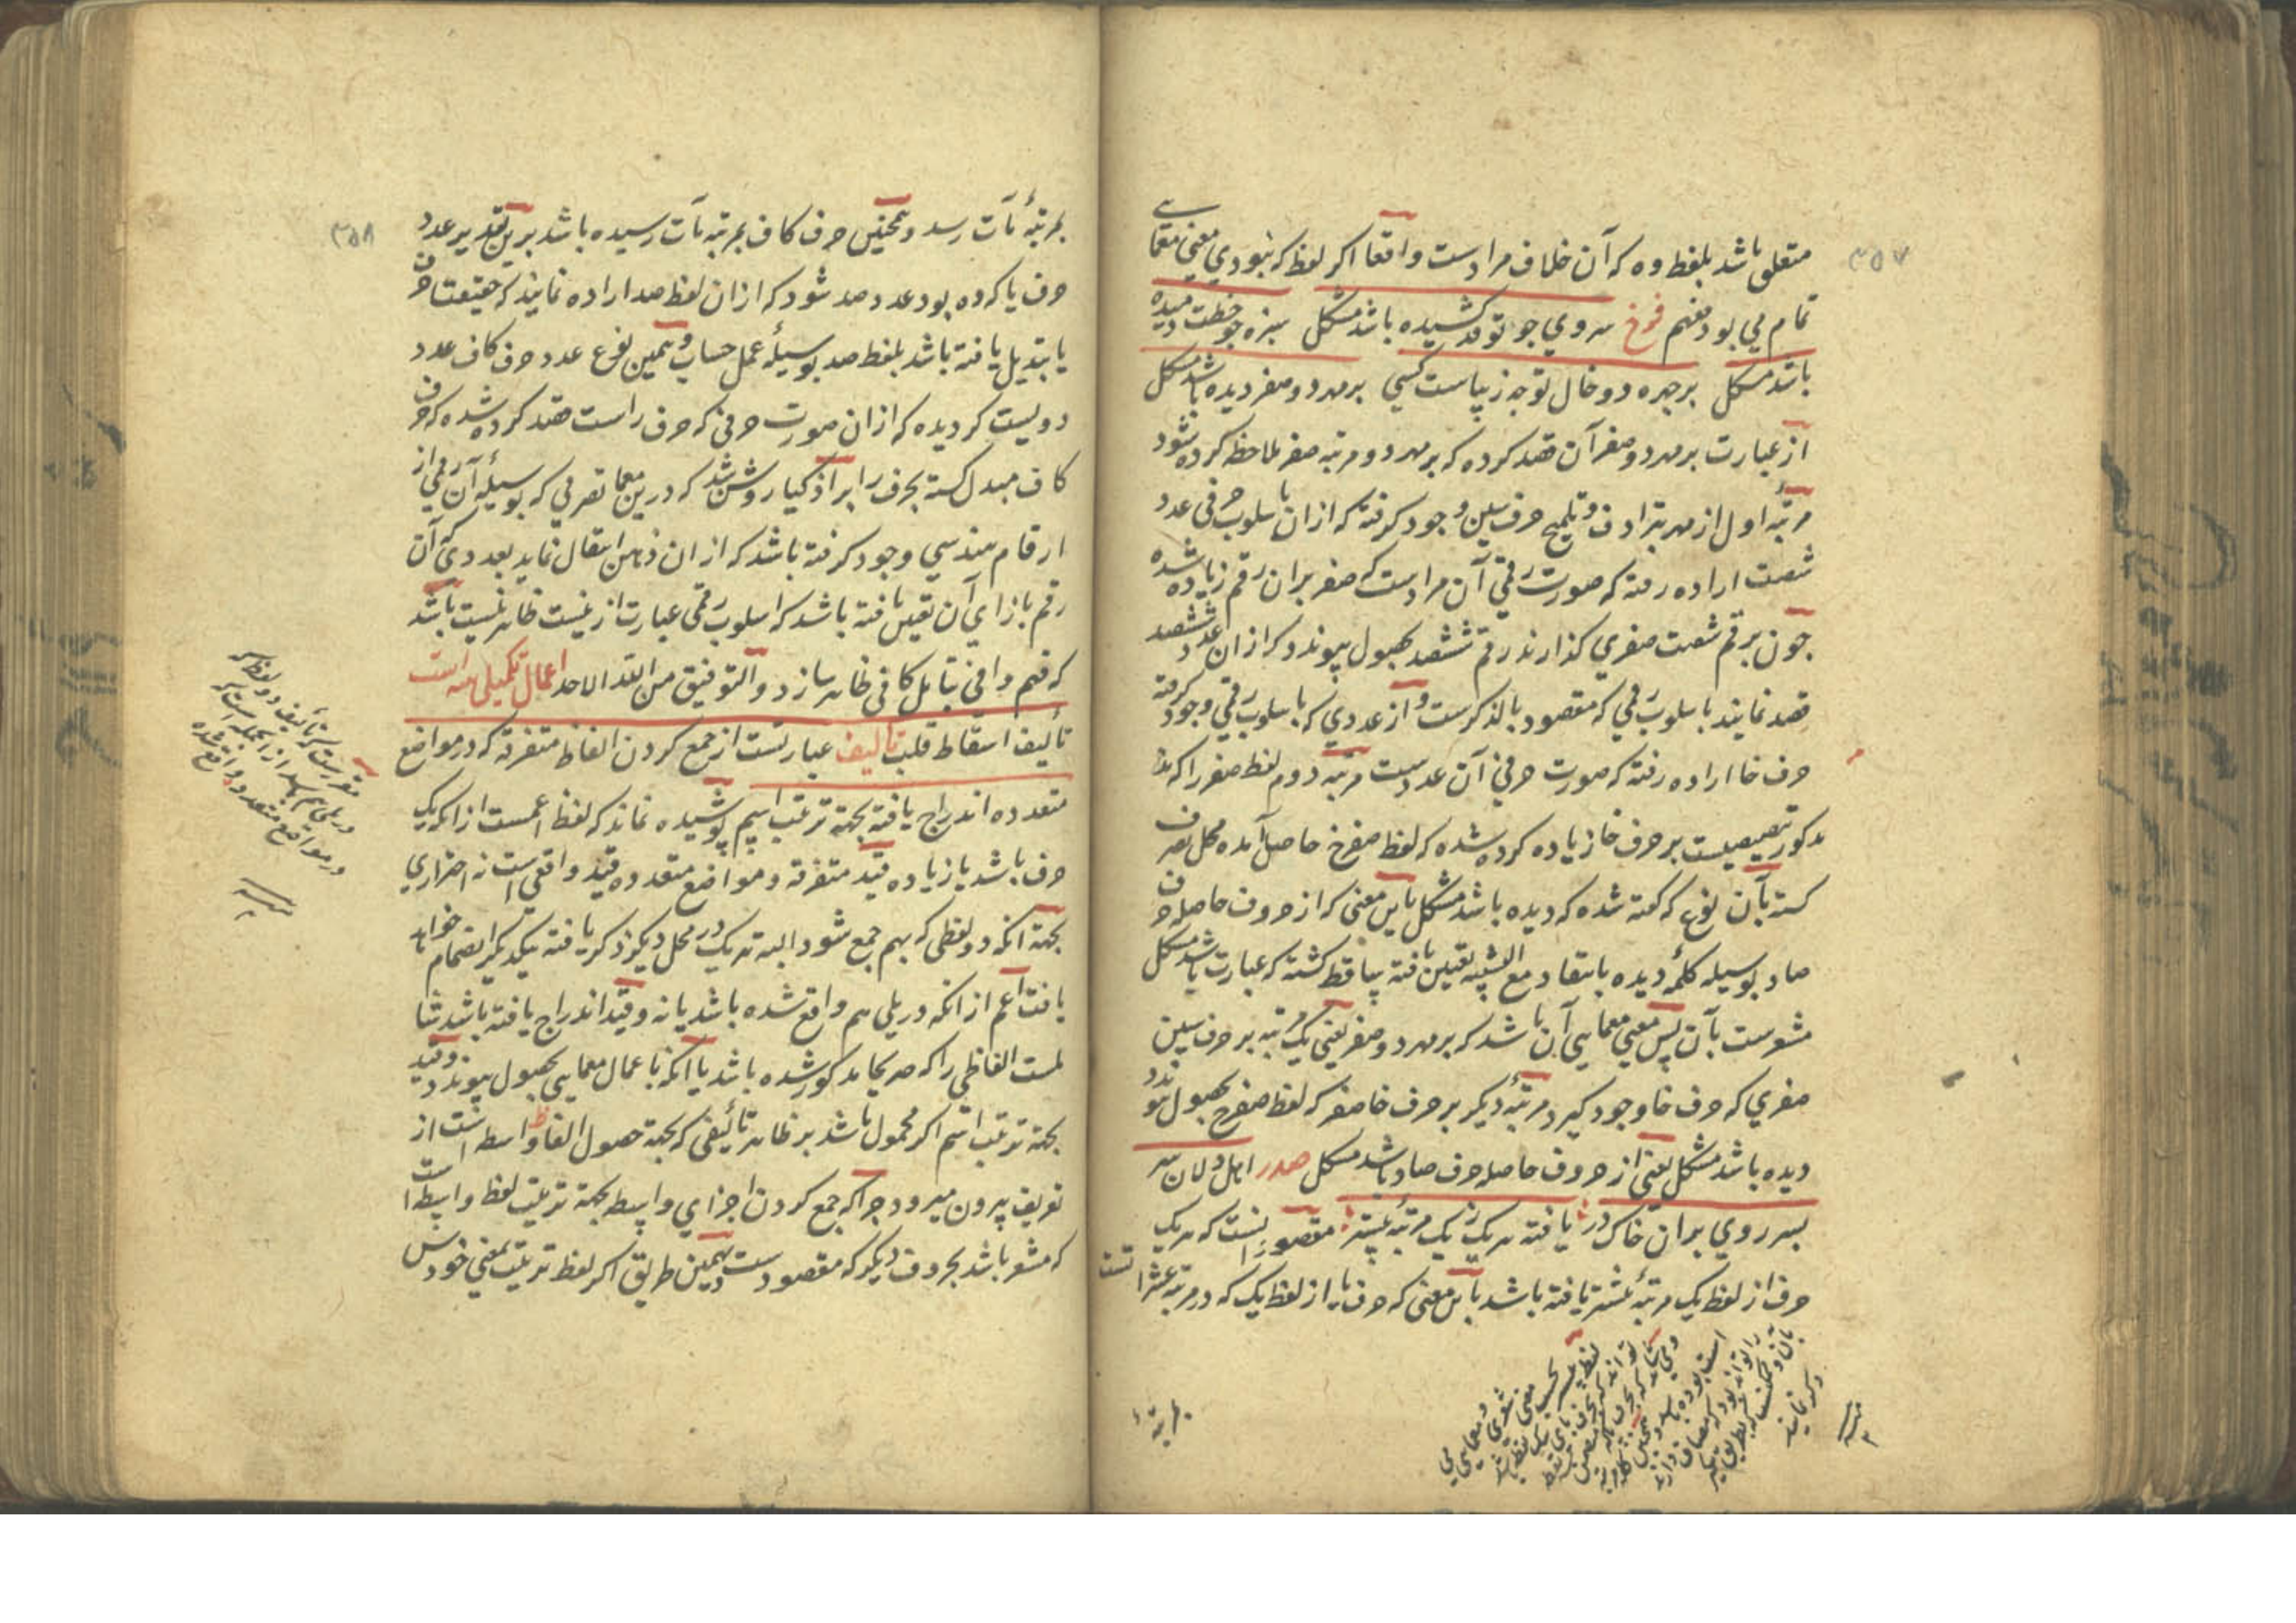 متعلق باشد بلفظ وه که آن خلاف مرادست واقعا اکر لفظ که نبودی معنی معمایی
تمام می بود فهم فرخ سروی جو تو قد کشیده باشد مشکل سبزه جو خطت دمیده
باشد مشکل بر جهره دو خال توجه زیباست کسی بر مه دو صفر دیده باشد مشکل
از عبارت بر مه دو صفر آن قصد کرده که بر مه دو مرتبه صفر ملاحظه کرده شود
مرتبهٔ اول از مه بترادف و تلمیح حرف سین وجود کرفته که ازان باسلوب حرفی عدد
شصت اراده رفته که صورت رقمی آن مرادست که صفر بران رقم زیاده شده
جون بر رقم شصت صفری کذارند رقم ششصد بحصول پیوندد که ازان عدد ششصد
قصد نمایند باسلوب رقمی که مقصود بالذکرست و از عددی که باسلوب رقمی وجود کرفته
حرف خا اراده رفته که صورت حرفی آن عددست مرتبه دوم لفظ صفر را که
مذکور تنصیصیست بر حرف خا زیاده کرده شده که لفظ صفرخ حاصل آمده محل تصرف
کشته بآن نوع که کفته شده که دیده باشد مشکل باین معنی که از حروف حاصله حرف
صاد بوسیله کلمهٔ دیده بانتقاد مع التشبیه تعیین یافته ساقط کشته که عبارت باشد مشکل
مشعرست بآن پس معنی معمایی آن باشد که بر مه دو صفر یعنی یک مرتبه بر حرف سین
صفری که حرف خا وجود کیرد و مرتبهٔ دیکر بر حرف خا صفر که لفظ صفرخ بحصول پیوندد
دیده باشد مشکل یعنی از حروف حاصله حرف صاد باشد مشکل صدر اهل دلان سر
بسر روی بران خاک در یافته هر یک ز یک مرتبهٔ بیشتر مقصود آنست که هر یک
حرف از لفظ یک مرتبهٔ بیشتر یافته باشد باین معنی که حرف یا از لفظ یک که در مرتبه عشراتست
بمرتبهٔ
بمرتبهٔ مآت رسد و همچنین حرف کاف بمرتبه مآت رسیده باشد برین تقدیر عدد
حرف یا که ده بود عدد صد شود که ازان لفظ صد اراده نمایند که حقیقتا حرف
یا تبدیل یافته باشد بلفظ صد بوسیلهٔ عمل حساب و همین نوع عدد حرف کاف عدد
دویست کردیده که ازان صورت حرفی که حرف راست قصد کرده شده که حرف
کاف مبدل کشته بحرف را بر اذکیا روشن شد که درین معما تصرفی که بوسیلهٔ آن رقمی از
ارقام هندسی وجود کرفته باشد که ازان ذهن انتقال نماید بعددی که آن
رقم بازای آن تعین یافته باشد که اسلوب رقمی عبارت از نیست ظاهر نیست باشد
که فهم وافی بتامل کافی ظاهر سازد والتوفیق من الله الاحد اعمال تکمیلی سه است
تألیف اسقاط قلب تالیف عبارتست از جمع کردن الفاظ متفرقه که در مواضع
متعدده اندراج یافته بجهة ترتیب اسم پوشیده نماند که لفظ اعمست ازانکه یک
حرف باشد یا زیاده قید متفرقه و مواضع متعدده قید واقعی است نه احترازی
بجهة آنکه دو لفظی که بهم جمع شود البته هر یک در محل دیکر ذکر یافته بیکدیکر انضمام خواهد
یافت اعم از انکه در پلی هم واقع شده باشد یا نه و قید اندراج یافته باشد شا
ملست الفاظی را که صریحا مذکور شده باشد یا آنکه باعمال معمایی بحصول پیوندد و قید
بجهة ترتیب اسم اکر محمول باشد بر ظاهر تألیفی که بجهة حصول الفاظ واسطه است از
تعریف بیرون میرود جرا که جمع کردن اجزای واسطه بجهة ترتیب لفظ واسطه است
که مشعر باشد بحروف دیکر که مقصودست و بهمین طریق اکر لفظ ترتیب بمعنی خودش